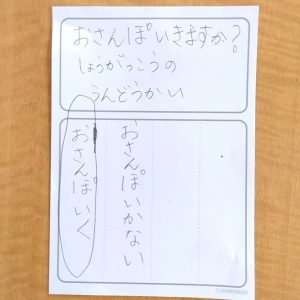 おさんぽいきますか?
しょうがっこうの
うんどうかい
おさんぽいかない
おさんぽいく